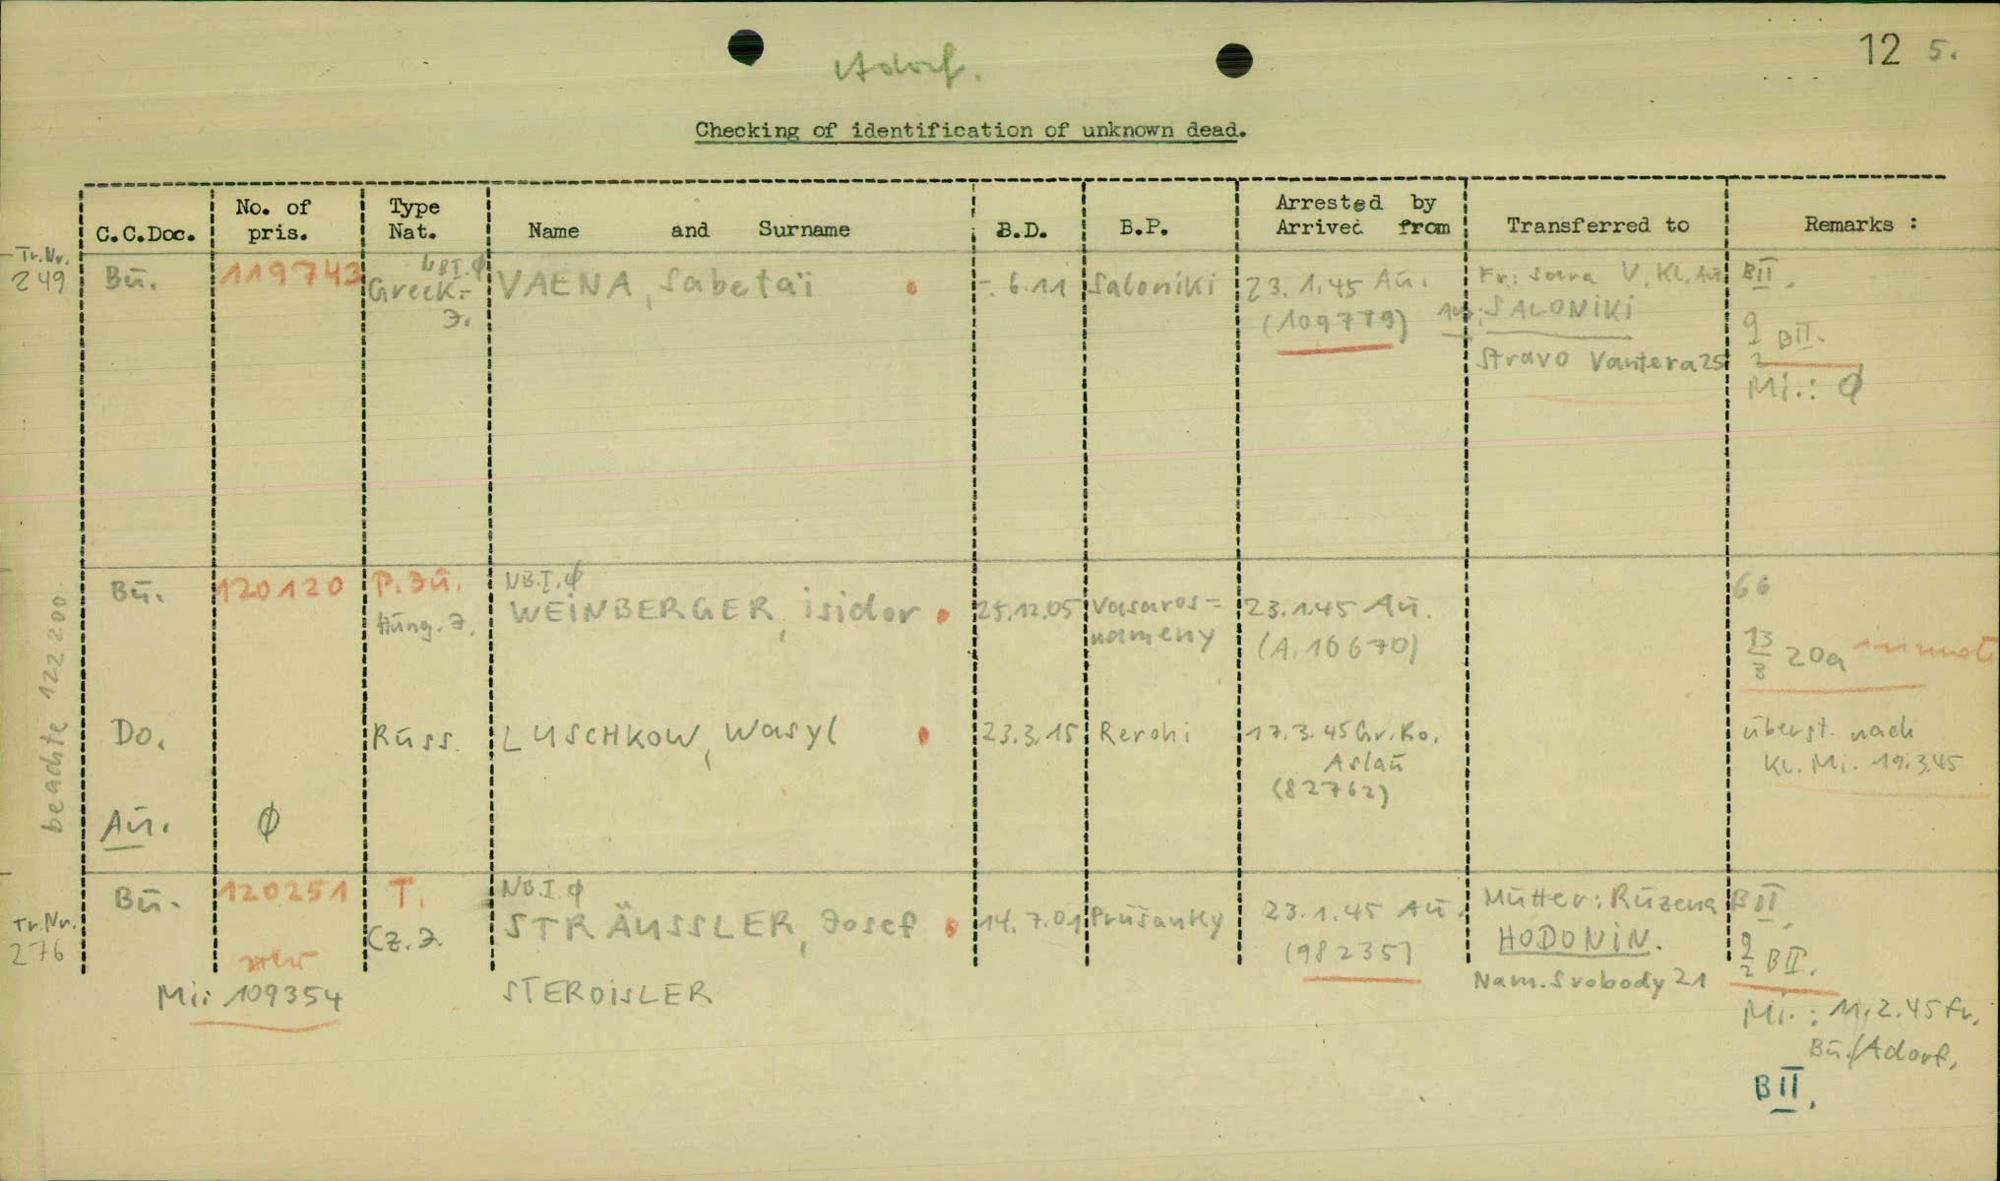 Adorf.
12 5.
Checking of identification of unknown dead.
C.C.Doc. No. of pris. Type Nat. Name and Surname B.D. B.P. Arrested by Arrived from Transferred to Remarks :
Tr.Nr. 249 Bü. 119743 NB I. ∅ Greek.- J. VAENA, Sabetaï -. 6.11 Saloniki 23.1.45 Aü. (109779) Fr.: Sara V. Kl. Aü. SALONIKI Stravo Vantera 25 BII. 9/2 BII. Mi.: ∅
beachte 122200
Bü. 120120 P. Jü. Hüng. J. NB.I.∅ WEINBERGER, isidor 25.12.05 Vasaros= nameny 23.1.45 Aü. (A.16670) 66 13/3 20a
Do. Rüss. LUSCHKOW, Wasyl 23.3.15 Rerohi 17.3.45 Gr. Ro. Aslaü (82762) überst. nach Kl. Mi. 19.3.45
Aü. ∅
Tr.Nr. 276 Bü. 120251 T. Cz. J. NB.I ∅ STRÄUSSLER, Josef 14.7.01 Prüšanky 23.1.45 Aü. (98235) Mütter: Rüzena HODONIN. Nam. Svobody 21 BII. 9/2 BII.
Mi: 109354 STEROISLER Mi.: 11.2.45 fr. Bü./Adorf,
BII.